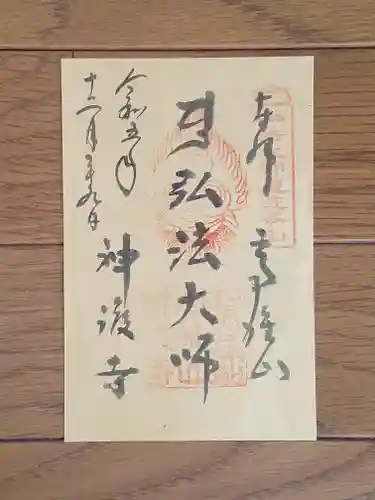 奉拝 高雄山
弘法大師
令和五年
十一月二十九日
神護寺